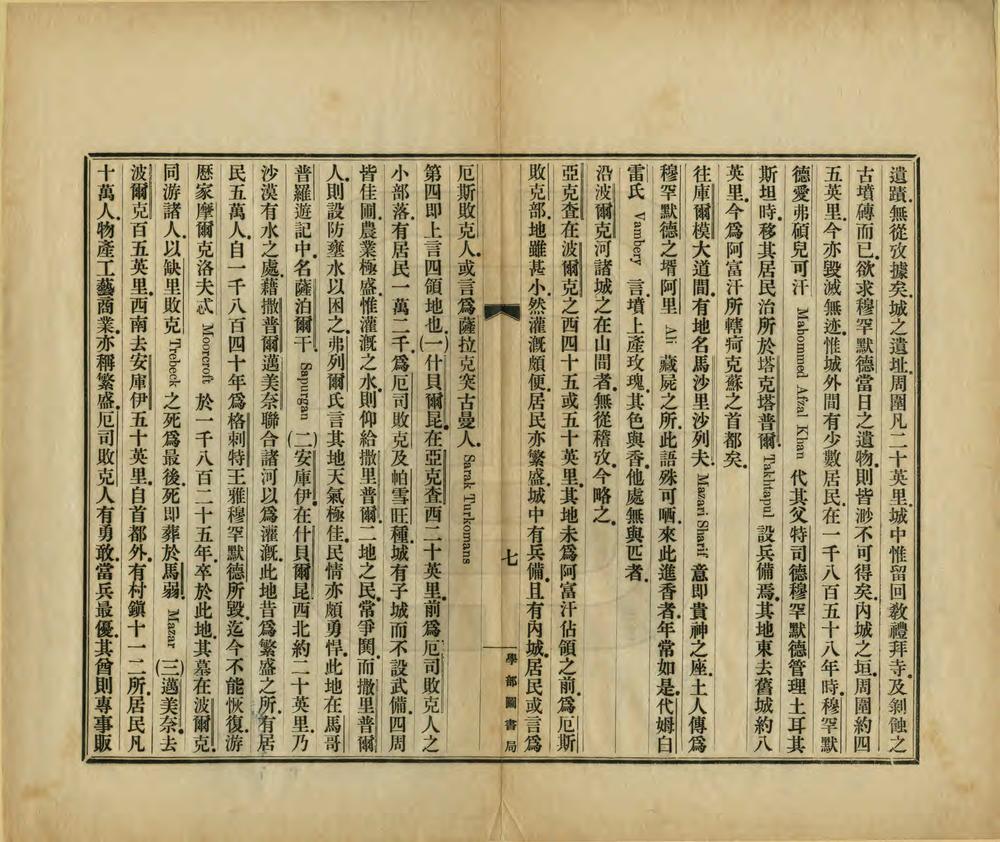 遺蹟.無從攷據矣.城之遺址.周圍凡二十英里.城中惟留回教禮拜寺.及剝蝕之
古墳磚而已.欲求穆罕默德當日之遺物.則皆渺不可得矣.內城之垣.周圍約四
五英里.今亦毀滅無迹.惟城外間有少數居民.在一千八百五十八年時.穆罕默
德愛弗碩兒可汗 Mahommed Afzal Khan 代其父特司德穆罕默德管理土耳其
斯坦.時.移其居民治所於塔克塔普爾.Takhtapul 設兵備焉.其地東去舊城約八
英里.今爲阿富汗所轄.疴克蘇之首都矣.
往庫爾模大道間.有地名馬沙里沙列夫.Mazari Sharif 意即貴神之座.土人傳爲
穆罕默德之壻阿里 Ali 藏屍之所.此語殊可哂.來此進香者.年常如是.代姆白
雷氏 Vambery 言.墳上產玫瑰.其色與香.他處無與匹者.
沿波爾克河諸城之在山間者.無從稽攷.今略之.
亞克查在波爾克之西四十五或五十英里.其地未爲阿富汗佔領之前.爲厄斯
敗克部.地雖甚小.然灌漑頗便.居民亦繁盛.城中有兵備.且有內城.居民或言爲
七
學部圖書局
厄斯敗克人.或言爲薩拉克突古曼人.Sarak Turkomans
第四卽上言四領地也.(一)什貝爾昆.在亞克查西二十英里.前爲厄司敗克人之
小部落.有居民一萬二千.爲厄司敗克及帕雪旺種.城有子城而不設武備.四周
皆佳圃.農業極盛.惟灌漑之水.則仰給撒里普爾.二地之民.常爭鬩.而撒里普爾
人.則設防壅水以困之.弗列爾氏言其地天氣極佳.民情亦頗勇悍.此地在馬哥
普羅遊記中.名薩泊爾干.Sapurgan (二)安庫伊.在什貝爾昆西北約二十英里.乃
沙漠有水之處.藉撒普爾邁美奈聯合諸河以爲灌漑.此地昔爲繁盛之所.有居
民五萬人.自一千八百四十年爲格刺特王雅穆罕默德所毀.迄今不能恢復.游
歷家摩爾克洛夫忒 Moorcroft 於一千八百二十五年.卒於此地.其墓在波爾克.
同游諸人.以缺里敗克 Trebeck 之死爲最後.死即葬於馬弱.Mazar (三)邁美奈.去
波爾克百五英里.西南去安庫伊五十英里.自首都外.有村鎭十一二所.居民凡
十萬人.物產工藝商業.亦稱繁盛.厄司敗克人有勇敢.當兵最優.其酋則專事販